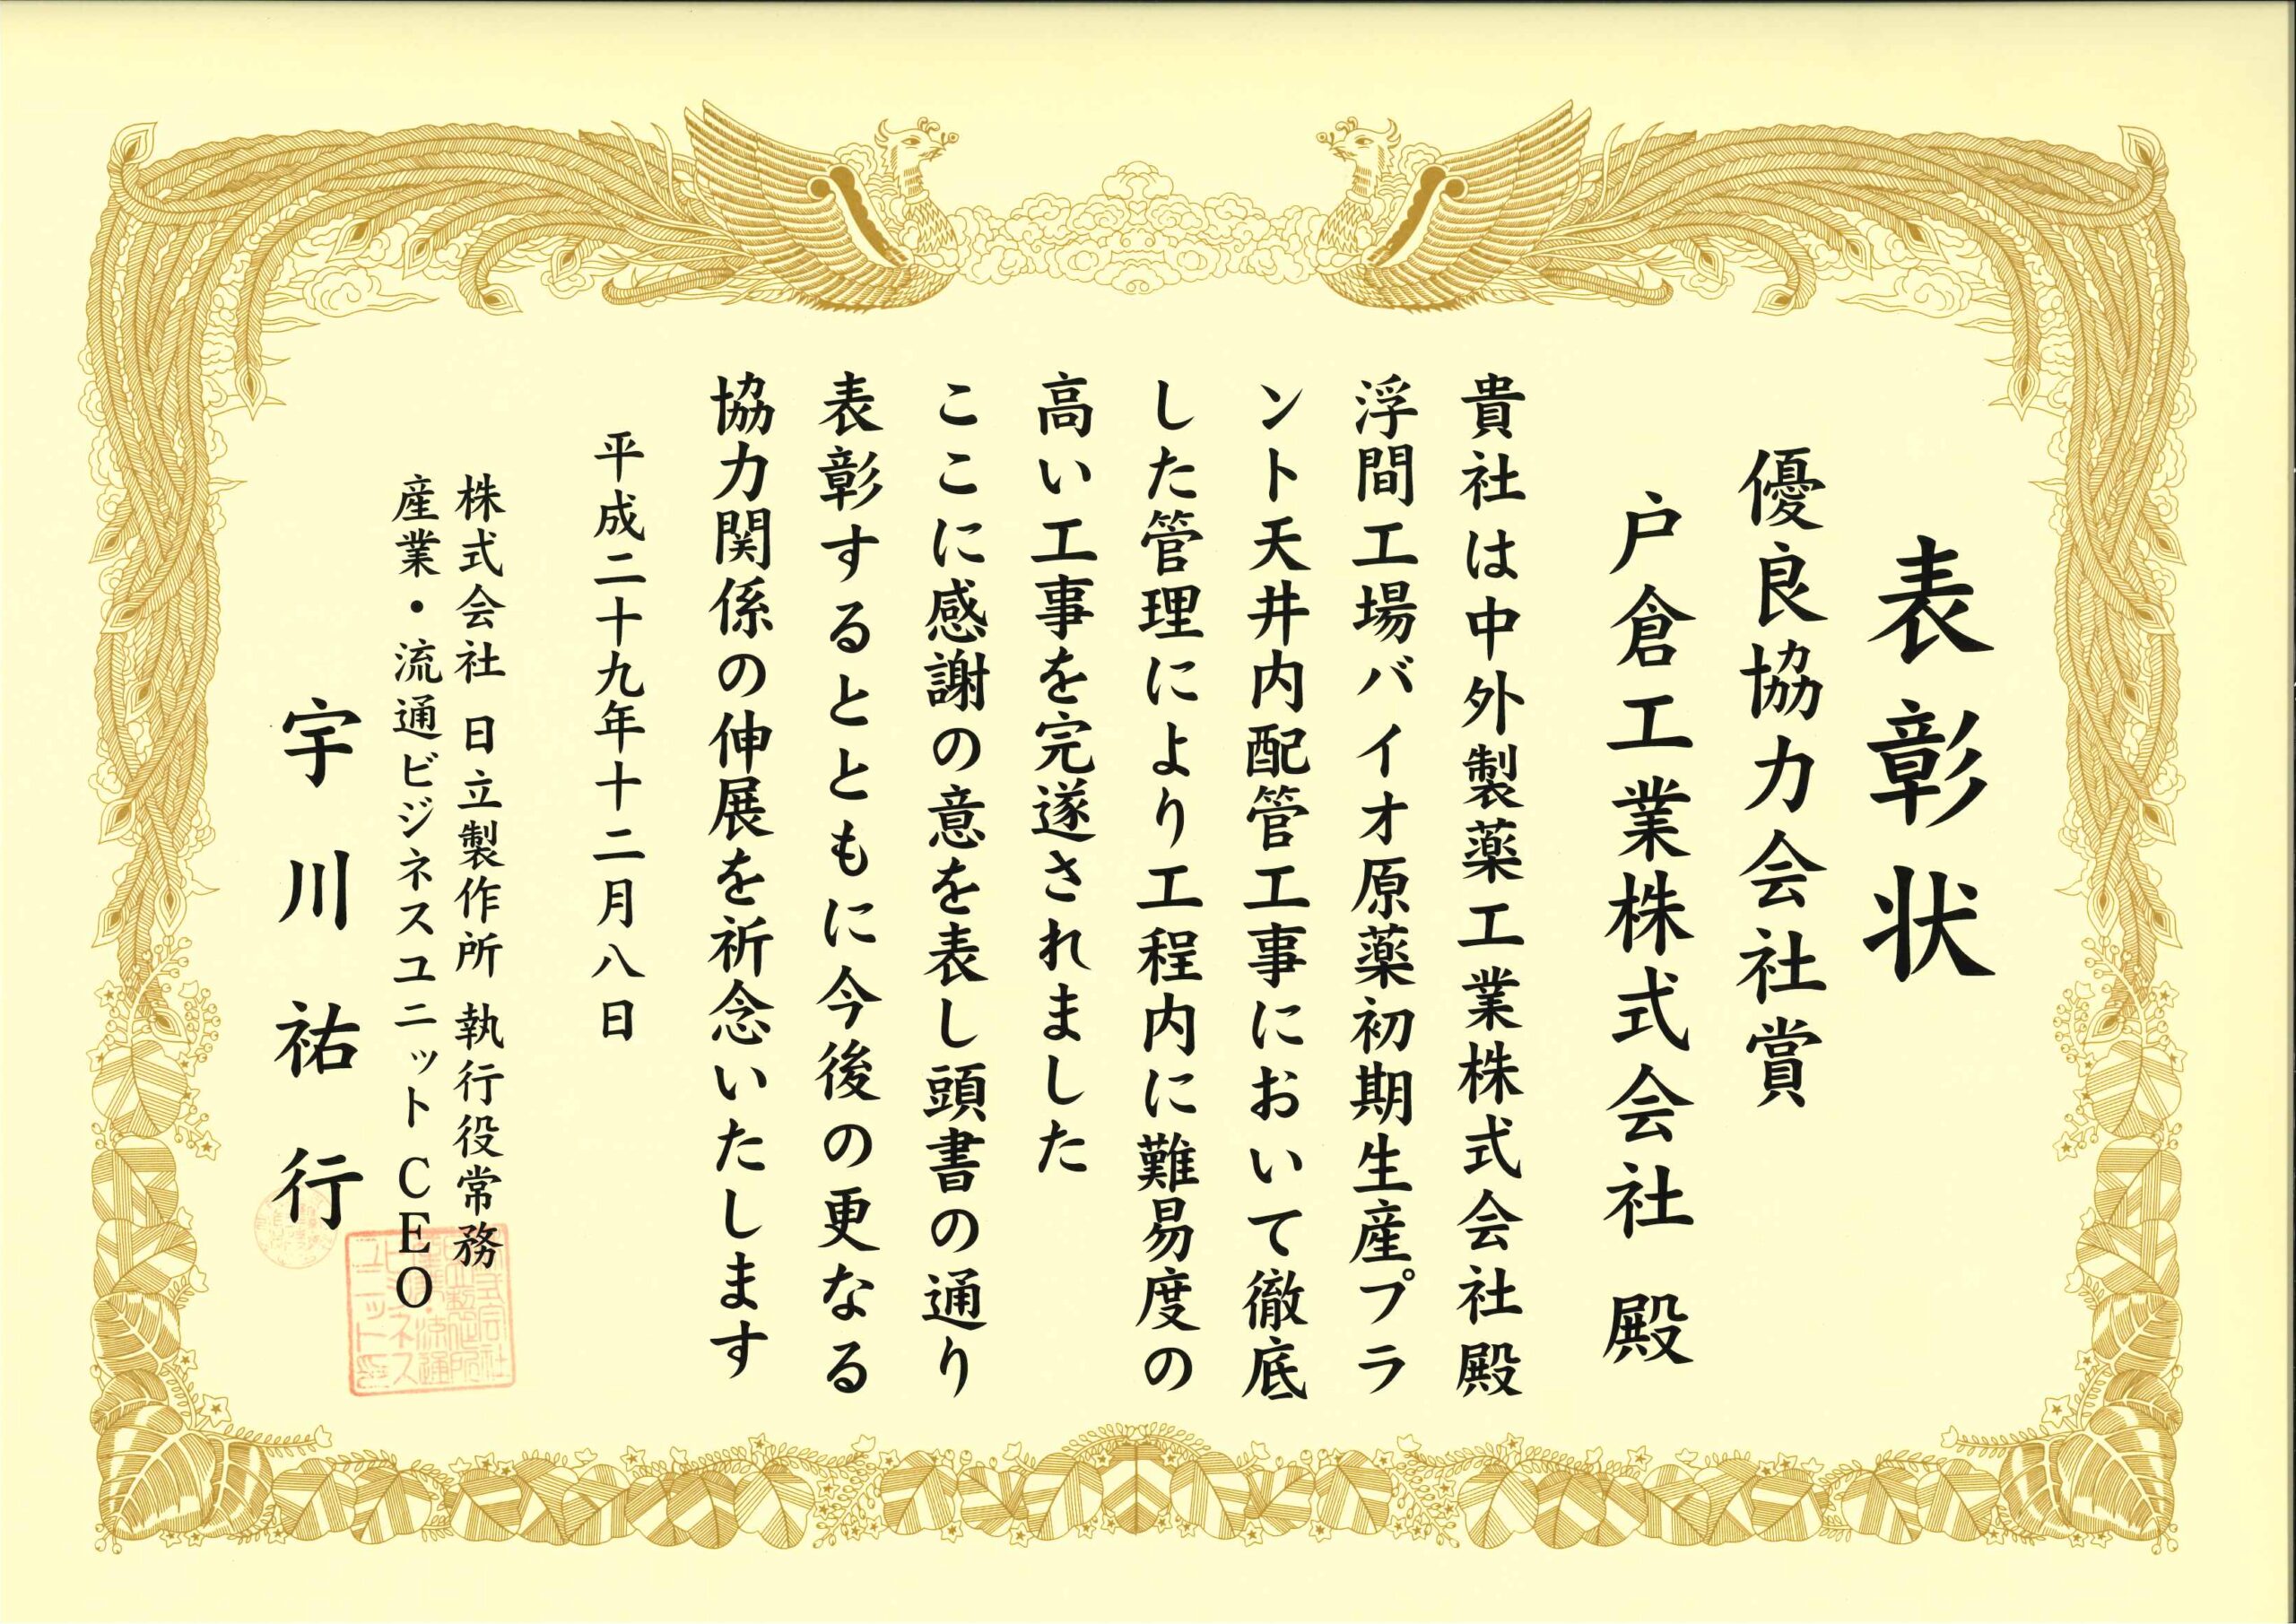 表彰状
優良協力会社賞
戸倉工業株式会社 殿
貴社は中外製薬工業株式会社殿
浮間工場バイオ原薬初期生産プラ
ント天井内配管工事において徹底
した管理により工程内に難易度の
高い工事を完遂されました
ここに感謝の意を表し頭書の通り
表彰するとともに今後の更なる
協力関係の伸展を祈念いたします
平成二十九年十二月八日
株式会社 日立製作所 執行役常務
産業・流通ビジネスユニット CEO
宇川祐行